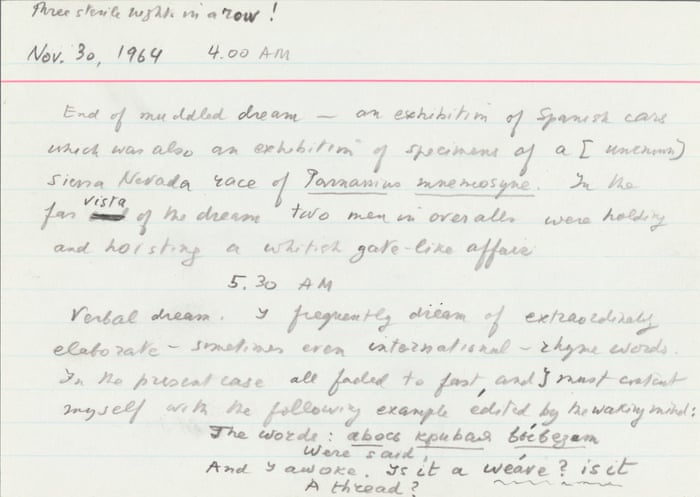 Three sterile nights in a row!
Nov. 30, 1964 4.00 AM
End of muddled dream – an exhibition of Spanish cars
which was also an exhibition of specimens of a [unknown)
Sierra Nevada race of Parnassius mnemosyne. In the
far vista of the dream two men in overalls were holding
and hoisting a whitish gate-like affair
5.30 AM
Verbal dream. I frequently dream of extraordinarily
elaborate – sometimes even international – rhyme words.
In the present case all faded to fast, and I must content
myself with the following example edited by the waking mind:
The words: авось кривая вывезет
Were said,
And I awoke. Is it a weave? is it
A thread?